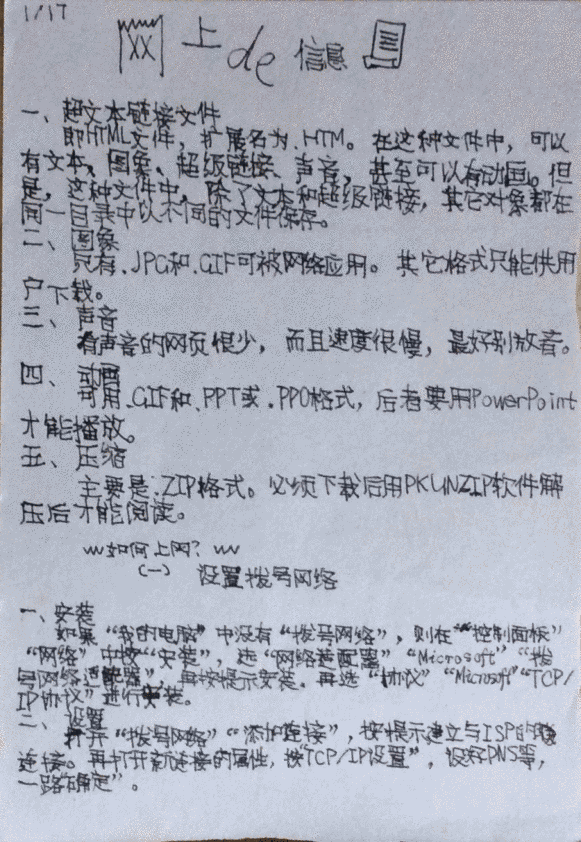 1/17
网上de信息
一、超文本链接文件
即HTML文件，扩展名为.HTM。在这种文件中，可以
有文本、图象、超级链接、声音，甚至可以有动画。但
是，这种文件中，除了文本和超级链接，其它对象都在
同一目录中以不同的文件保存。
二、图象
只有.JPG和.GIF可被网络应用。其它格式只能供用
户下载。
三、声音
有声音的网页很少，而且速度很慢，最好别放音。
四、动画
可用.GIF和.PPT或.PPO格式，后者要用PowerPoint
才能播放。
五、压缩
主要是.ZIP格式。必须下载后用PKUNZIP软件解
压后才能阅读。
如何上网？
（一） 设置拨号网络
一、安装
如果“我的电脑”中没有“拨号网络”，则在“控制面板”
“网络”中按“安装”，选“网络适配器”“Microsoft”“拨
号网络适配器”，再按提示安装。再选“协议”“Microsoft”“TCP/
IP协议”进行安装。
二、设置
打开“拨号网络”“添加连接”，按提示建立与ISP的
连接。再打开新连接的属性，按“TCP/IP设置”，设好DNS等，
一路“确定”。